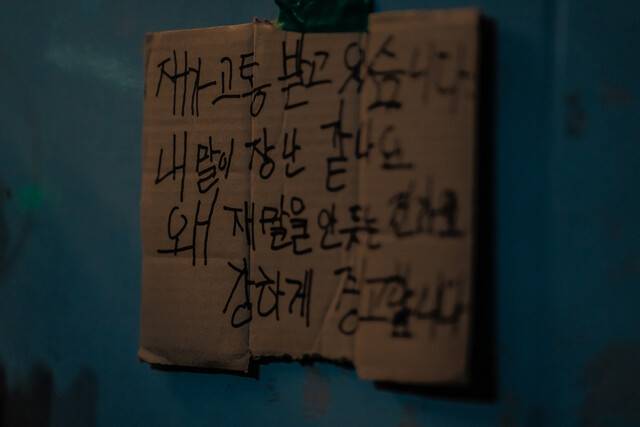 재가 고통 받고 있습니다
내 말이 장난 같나요
왜 재 말을 안 듣는
강하게 중고합니다